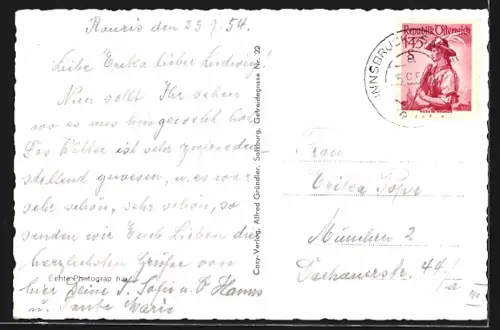 Rauris den 23 7. 54.
Liebe Erika lieber Ludwig!
Nun sollt Ihr sehen
wo es uns hingeweht hat
Das Wetter ist sehr zufrieden-
stellend gewesen, u. es war
sehr schön, sehr schön, so
senden wir Euch Lieben die
herzlichsten Grüße von
hier Deine T. Sofie u. O Hanns
u. Tante Marie
Echte Photograp hie
Cosy-Verlag, Alfred Gründler, Salzburg, Getreidegasse Nr. 22
Republik Österreich
1.45
S
INNSBRUCK
Frau
Erika Pope
München 2
Dachauerstr. 44/a